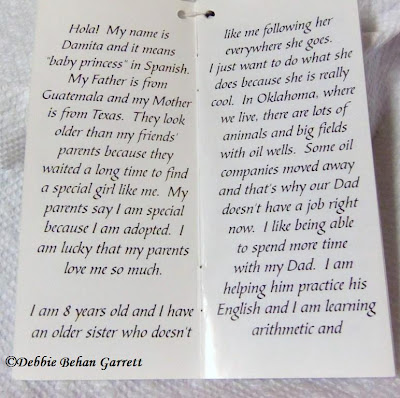 Hola!  My name is
Damita and it means
"baby princess" in Spanish.
My Father is from
Guatemala and my Mother
is from Texas.  They look
older than my friends'
parents because they
waited a long time to find
a special girl like me.  My
parents say I am special
because I am adopted.  I
am lucky that my parents
love me so much.
I am 8 years old and I have
an older sister who doesn't
like me following her
everywhere she goes.
I just want to do what she
does because she is really
cool.  In Oklahoma, where
we live, there are lots of
animals and big fields
with oil wells.  Some oil
companies moved away
and that's why our Dad
doesn't have a job right
now.  I like being able
to spend more time
with my Dad.  I am
helping him practice his
English and I am learning
arithmetic and
©Debbie Behan Garrett